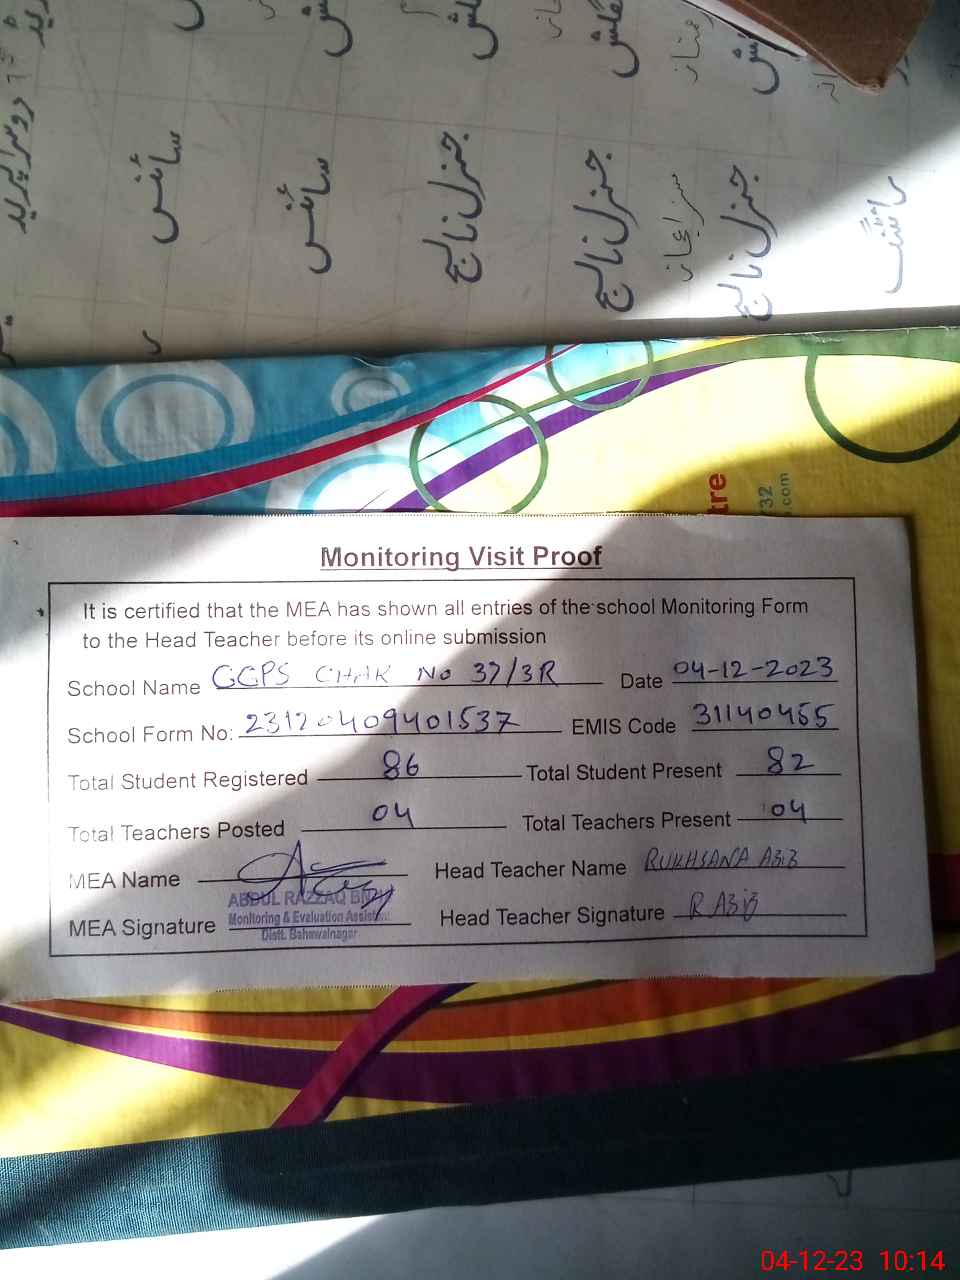 دوسرا پیریڈ
سائنس
سائنس
جنرل نالج
جنرل نالج
جنرل نالج
tre
32
.com
Monitoring Visit Proof
It is certified that the MEA has shown all entries of the school Monitoring Form
to the Head Teacher before its online submission
School Name GGPS CHAK No 37/3R Date 04-12-2023
School Form No: 23120409401537 EMIS Code 31140455
Total Student Registered 86 Total Student Present 82
Total Teachers Posted 04 Total Teachers Present 04
MEA Name Head Teacher Name RUKHSANA ABIB
ABDUL RAZZAQ
MEA Signature Monitoring & Evaluation Assistant Head Teacher Signature R ABIB
Distt. Bahawalnagar
04-12-23 10:14